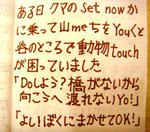 ある日クマのSet nowか
に乗って山meちをYouくと
谷のところで動物touch
が困っていました
「Doしよう?橋がないから
向こうへ渡れないYo!」
「よし!ぼくにまかせてOK!」